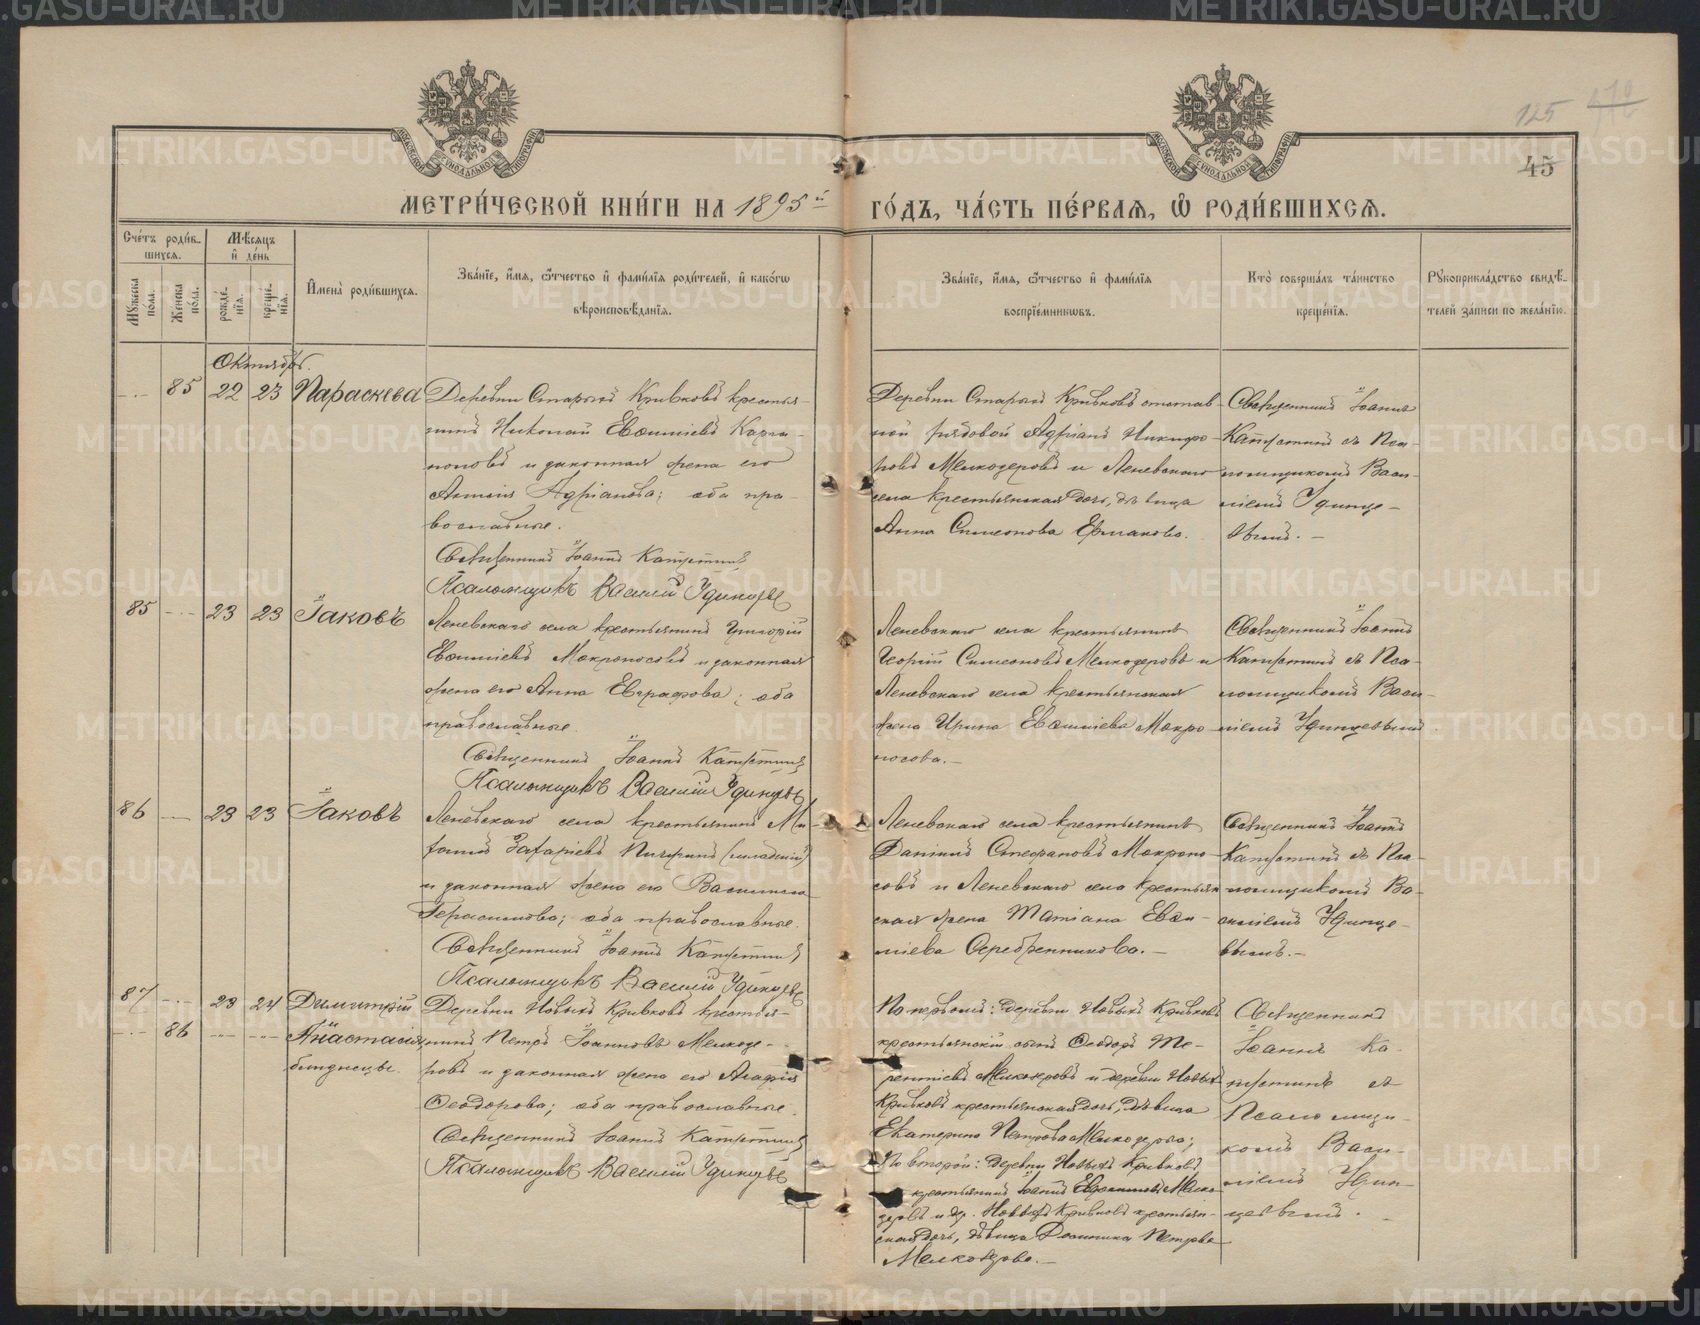 125
45
МЕТРИ́ЧЕСКОЙ КНИ́ГИ НА 1895й ГО́ДЪ, ЧА́СТЬ ПЕ́РВАЯ, Ѡ РОДИ́ВШИХСЯ.
Сче́тъ роди́в-
шихся.
Мѣ́сяцъ
и҆ де́нь
Му́жеска
по́ла.
Же́нска
по́ла.
рожде́-
нїя.
креще́-
нїя.
И҆мена̀ роди́вшихся.
Зва́нїе, и҆́мя, ѻ҆́тчество и҆ фами́лїя роди́телей, и҆ како́гѡ
вѣроисповѣ́данїя.
Зва́нїе, и҆́мя, ѻ҆́тчество и҆ фами́лїя
воспрїе́мникѡвъ.
Кто̀ соверша́лъ та́инство
креще́нїя.
Рꙋкоприкла́дство свидѣ́-
телей за́писи по жела́нїю.
Октябрь.
85 22 23 Параскева
Деревни Старыхъ Кривковъ крестья-
нинъ Николай Евѳиміевъ Карга-
половъ и законная жена его
Адріанова; оба пра-
вославные.
Священникъ Іоаннъ Капустинъ
Псаломщикъ Василій Удинцевъ
Деревни Старыхъ Кривковъ отстав-
ной рядовой Адріанъ Никифо-
ровъ Мелкозеровъ и Леневскаго
села крестьянская дочь, дѣвица
Анна Симеонова Ермакова.
Священникъ Іоаннъ
Капустинъ съ Пса-
ломщикомъ Васи-
ліемъ Удинце-
вымъ.
85 23 23 Іаковъ
Леневскаго села крестьянинъ Григорій
Евѳиміевъ Мокроносовъ и законная
жена его Анна Евграфова; оба
православные.
Священникъ Іоаннъ Капустинъ
Псаломщикъ Василій Удинцевъ
Леневскаго села крестьянинъ
Георгій Симеоновъ Мелкозеровъ и
Леневскаго села крестьянская
жена Ирина Евѳиміева Мокро-
носова.
Священникъ Іоаннъ
Капустинъ съ Пса-
ломщикомъ Васи-
ліемъ Удинцевымъ
86 23 23 Іаковъ
Леневскаго села крестьянинъ
Захаріевъ Пичугинъ (младшій)
и законная жена его Васс
Герасимова; оба православные.
Священникъ Іоаннъ Капустинъ
Псаломщикъ Василій Удинцевъ
Леневскаго села крестьянинъ
Даніилъ Стефановъ Мокроно-
совъ и Леневскаго села крестьян-
ская жена Татіана Евѳи-
міева Серебренникова.
Священникъ Іоаннъ
Капустинъ съ Пса-
ломщикомъ Ва-
силіемъ Удинце-
вымъ.
87 23 24 Димитрій
86 Анастасія
близнецы.
Деревни Новыхъ Кривковъ крестья-
нинъ Петръ Іоанновъ Мелкозе-
ровъ и законная жена его Агафія
Ѳеодорова; оба православные.
Священникъ Іоаннъ Капустинъ
Псаломщикъ Василій Удинцевъ
По первомъ: деревни Новыхъ Кривковъ
крестьянскій сынъ Ѳеодоръ Те-
рентіевъ Мелкозеровъ и деревни Новыхъ
Кривковъ крестьянская дочь, дѣвица
Екатерина Петрова Мелкозерова;
По второй: деревни Новыхъ Кривковъ
крестьянинъ Іоаннъ Мелко-
зеровъ и др. Новыхъ Кривковъ крестьян-
ская дочь, дѣвица Домника Петрова
Мелкозерова.
Священникъ
Іоаннъ Ка-
пустинъ съ
Псаломщи-
комъ Васи-
ліемъ Удин-
цевымъ.
METRIKI.GASO-URAL.RU